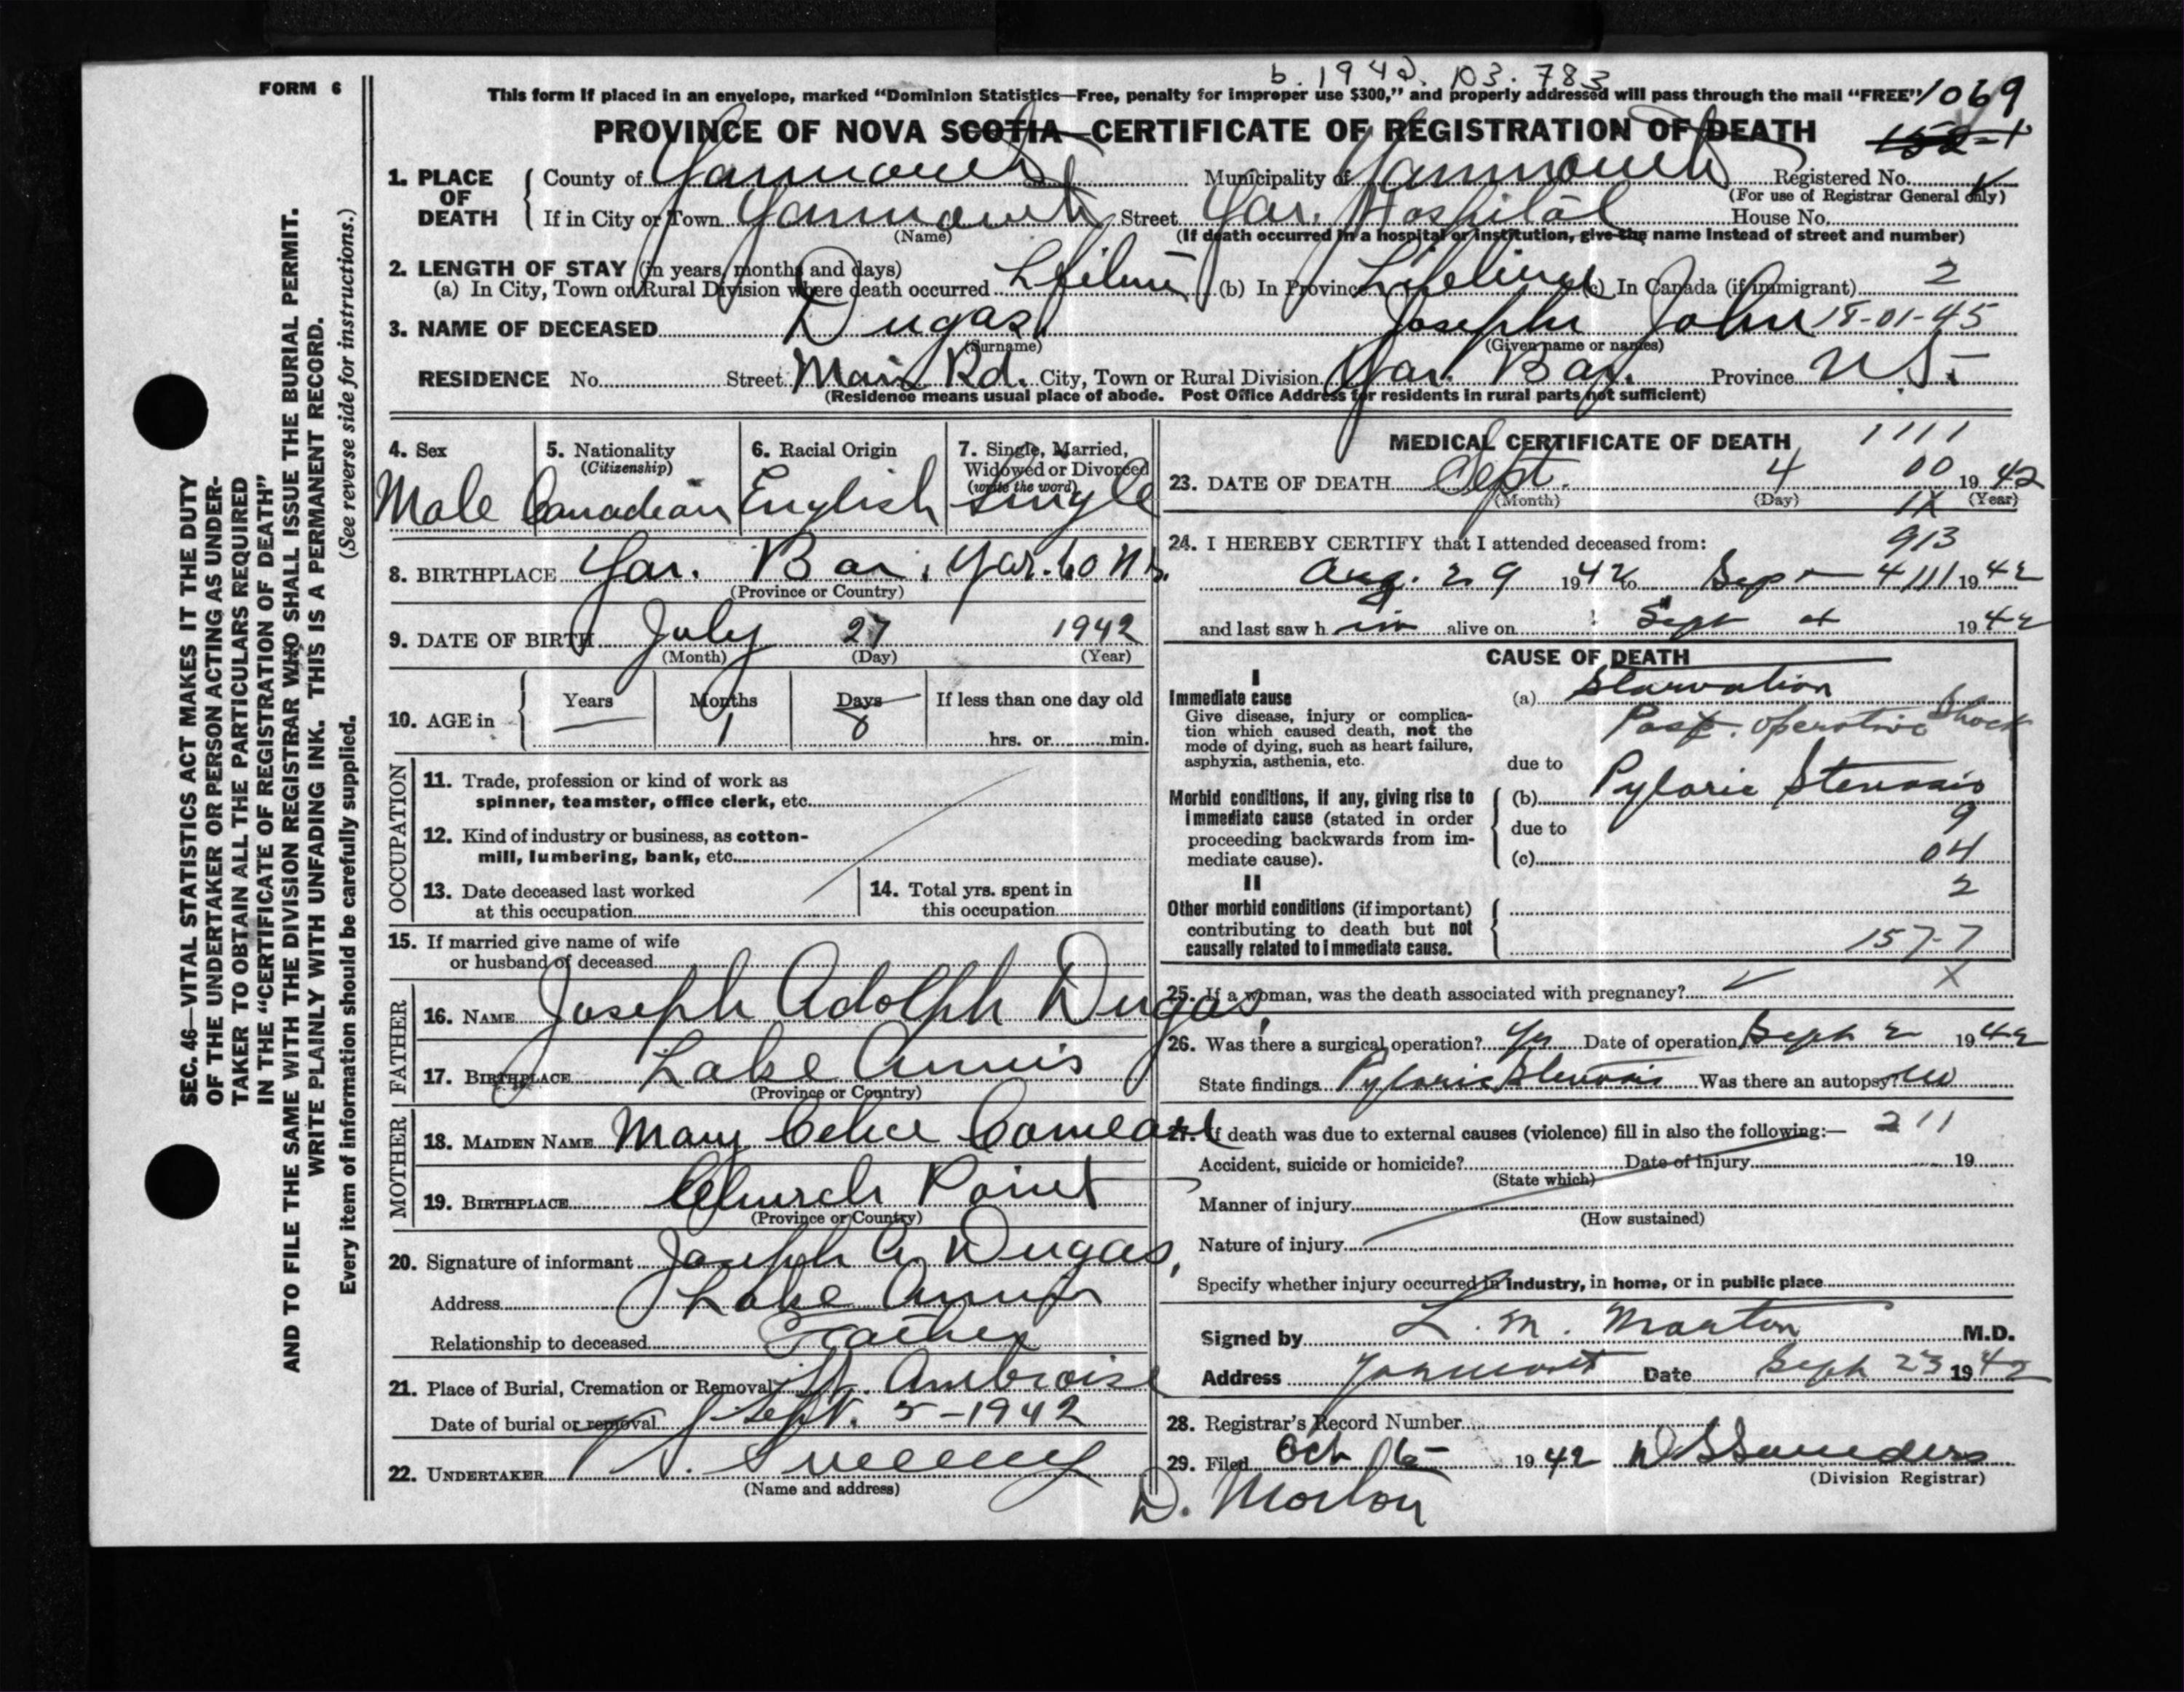 FORM 6
b. 1942. 103. 783
This form if placed in an envelope, marked "Dominion Statistics—Free, penalty for improper use $300," and properly addressed will pass through the mail "FREE" 1069
PROVINCE OF NOVA SCOTIA—CERTIFICATE OF REGISTRATION OF DEATH
1. PLACE OF DEATH
County of Yarmouth Municipality of Yarmouth Registered No.
(For use of Registrar General only)
If in City or Town Yarmouth Street Yar. Hospital House No.
(Name) (If death occurred in a hospital or institution, give the name instead of street and number)
2. LENGTH OF STAY (in years, months and days)
(a) In City, Town or Rural Division where death occurred Lifetime (b) In Province Lifetime (c) In Canada (if immigrant) 2
3. NAME OF DECEASED Dugas, Joseph John 18-01-45
(Surname) (Given name or names)
RESIDENCE No. Street Main Rd. City, Town or Rural Division Yar. Bar. Province N.S.
(Residence means usual place of abode. Post Office Address for residents in rural parts not sufficient)
4. Sex
Male
5. Nationality
(Citizenship)
Canadian
6. Racial Origin
English
7. Single, Married, Widowed or Divorced
(write the word)
single
8. BIRTHPLACE Yar. Bar, Yar. Co N.S.
(Province or Country)
9. DATE OF BIRTH July 27 1942
(Month) (Day) (Year)
10. AGE in
Years Months Days If less than one day old
— 1 8 hrs. or min.
OCCUPATION
11. Trade, profession or kind of work as
spinner, teamster, office clerk, etc.
12. Kind of industry or business, as cotton-
mill, lumbering, bank, etc.
13. Date deceased last worked
at this occupation
14. Total yrs. spent in
this occupation
15. If married give name of wife
or husband of deceased
FATHER
16. NAME Joseph Adolph Dugas,
17. BIRTHPLACE Lake Annis
(Province or Country)
MOTHER
18. MAIDEN NAME Mary Celice Comeau
19. BIRTHPLACE Church Point
(Province or Country)
20. Signature of informant Joseph A. Dugas,
Address Lake Annis
Relationship to deceased Father
21. Place of Burial, Cremation or Removal St. Ambroise
Date of burial or removal Sept. 5-1942
22. UNDERTAKER V. Sweeny
(Name and address)
MEDICAL CERTIFICATE OF DEATH 1111
23. DATE OF DEATH Sept. 4 00 1942
(Month) (Day) IX (Year)
24. I HEREBY CERTIFY that I attended deceased from: 913
Aug. 29 1942 to Sept 4 111 1942
and last saw him alive on Sept 4 1942
CAUSE OF DEATH
I
Immediate cause
Give disease, injury or complica-
tion which caused death, not the
mode of dying, such as heart failure,
asphyxia, asthenia, etc.
(a) Starvation
Post-operative Shock
due to
Morbid conditions, if any, giving rise to
immediate cause (stated in order
proceeding backwards from im-
mediate cause).
(b) Pyloric Stenosis
due to 9
(c) 04
II
2
Other morbid conditions (if important)
contributing to death but not
causally related to immediate cause.
157-7
25. If a woman, was the death associated with pregnancy? X
26. Was there a surgical operation? Yes Date of operation Sept 2 1942
State findings Pyloric Stenosis Was there an autopsy? no
27. If death was due to external causes (violence) fill in also the following:— 211
Accident, suicide or homicide? Date of injury 19
(State which)
Manner of injury
(How sustained)
Nature of injury
Specify whether injury occurred in industry, in home, or in public place
Signed by L. M. Morton M.D.
Address Yarmouth Date Sept 23 1942
28. Registrar's Record Number
29. Filed Oct 1942 Saunders
(Division Registrar)
D. Morton
SEC. 46—VITAL STATISTICS ACT MAKES IT THE DUTY
OF THE UNDERTAKER OR PERSON ACTING AS UNDER-
TAKER TO OBTAIN ALL THE PARTICULARS REQUIRED
IN THE "CERTIFICATE OF REGISTRATION OF DEATH"
AND TO FILE THE SAME WITH THE DIVISION REGISTRAR WHO SHALL ISSUE THE BURIAL PERMIT.
WRITE PLAINLY WITH UNFADING INK. THIS IS A PERMANENT RECORD.
Every item of information should be carefully supplied. (See reverse side for instructions.)